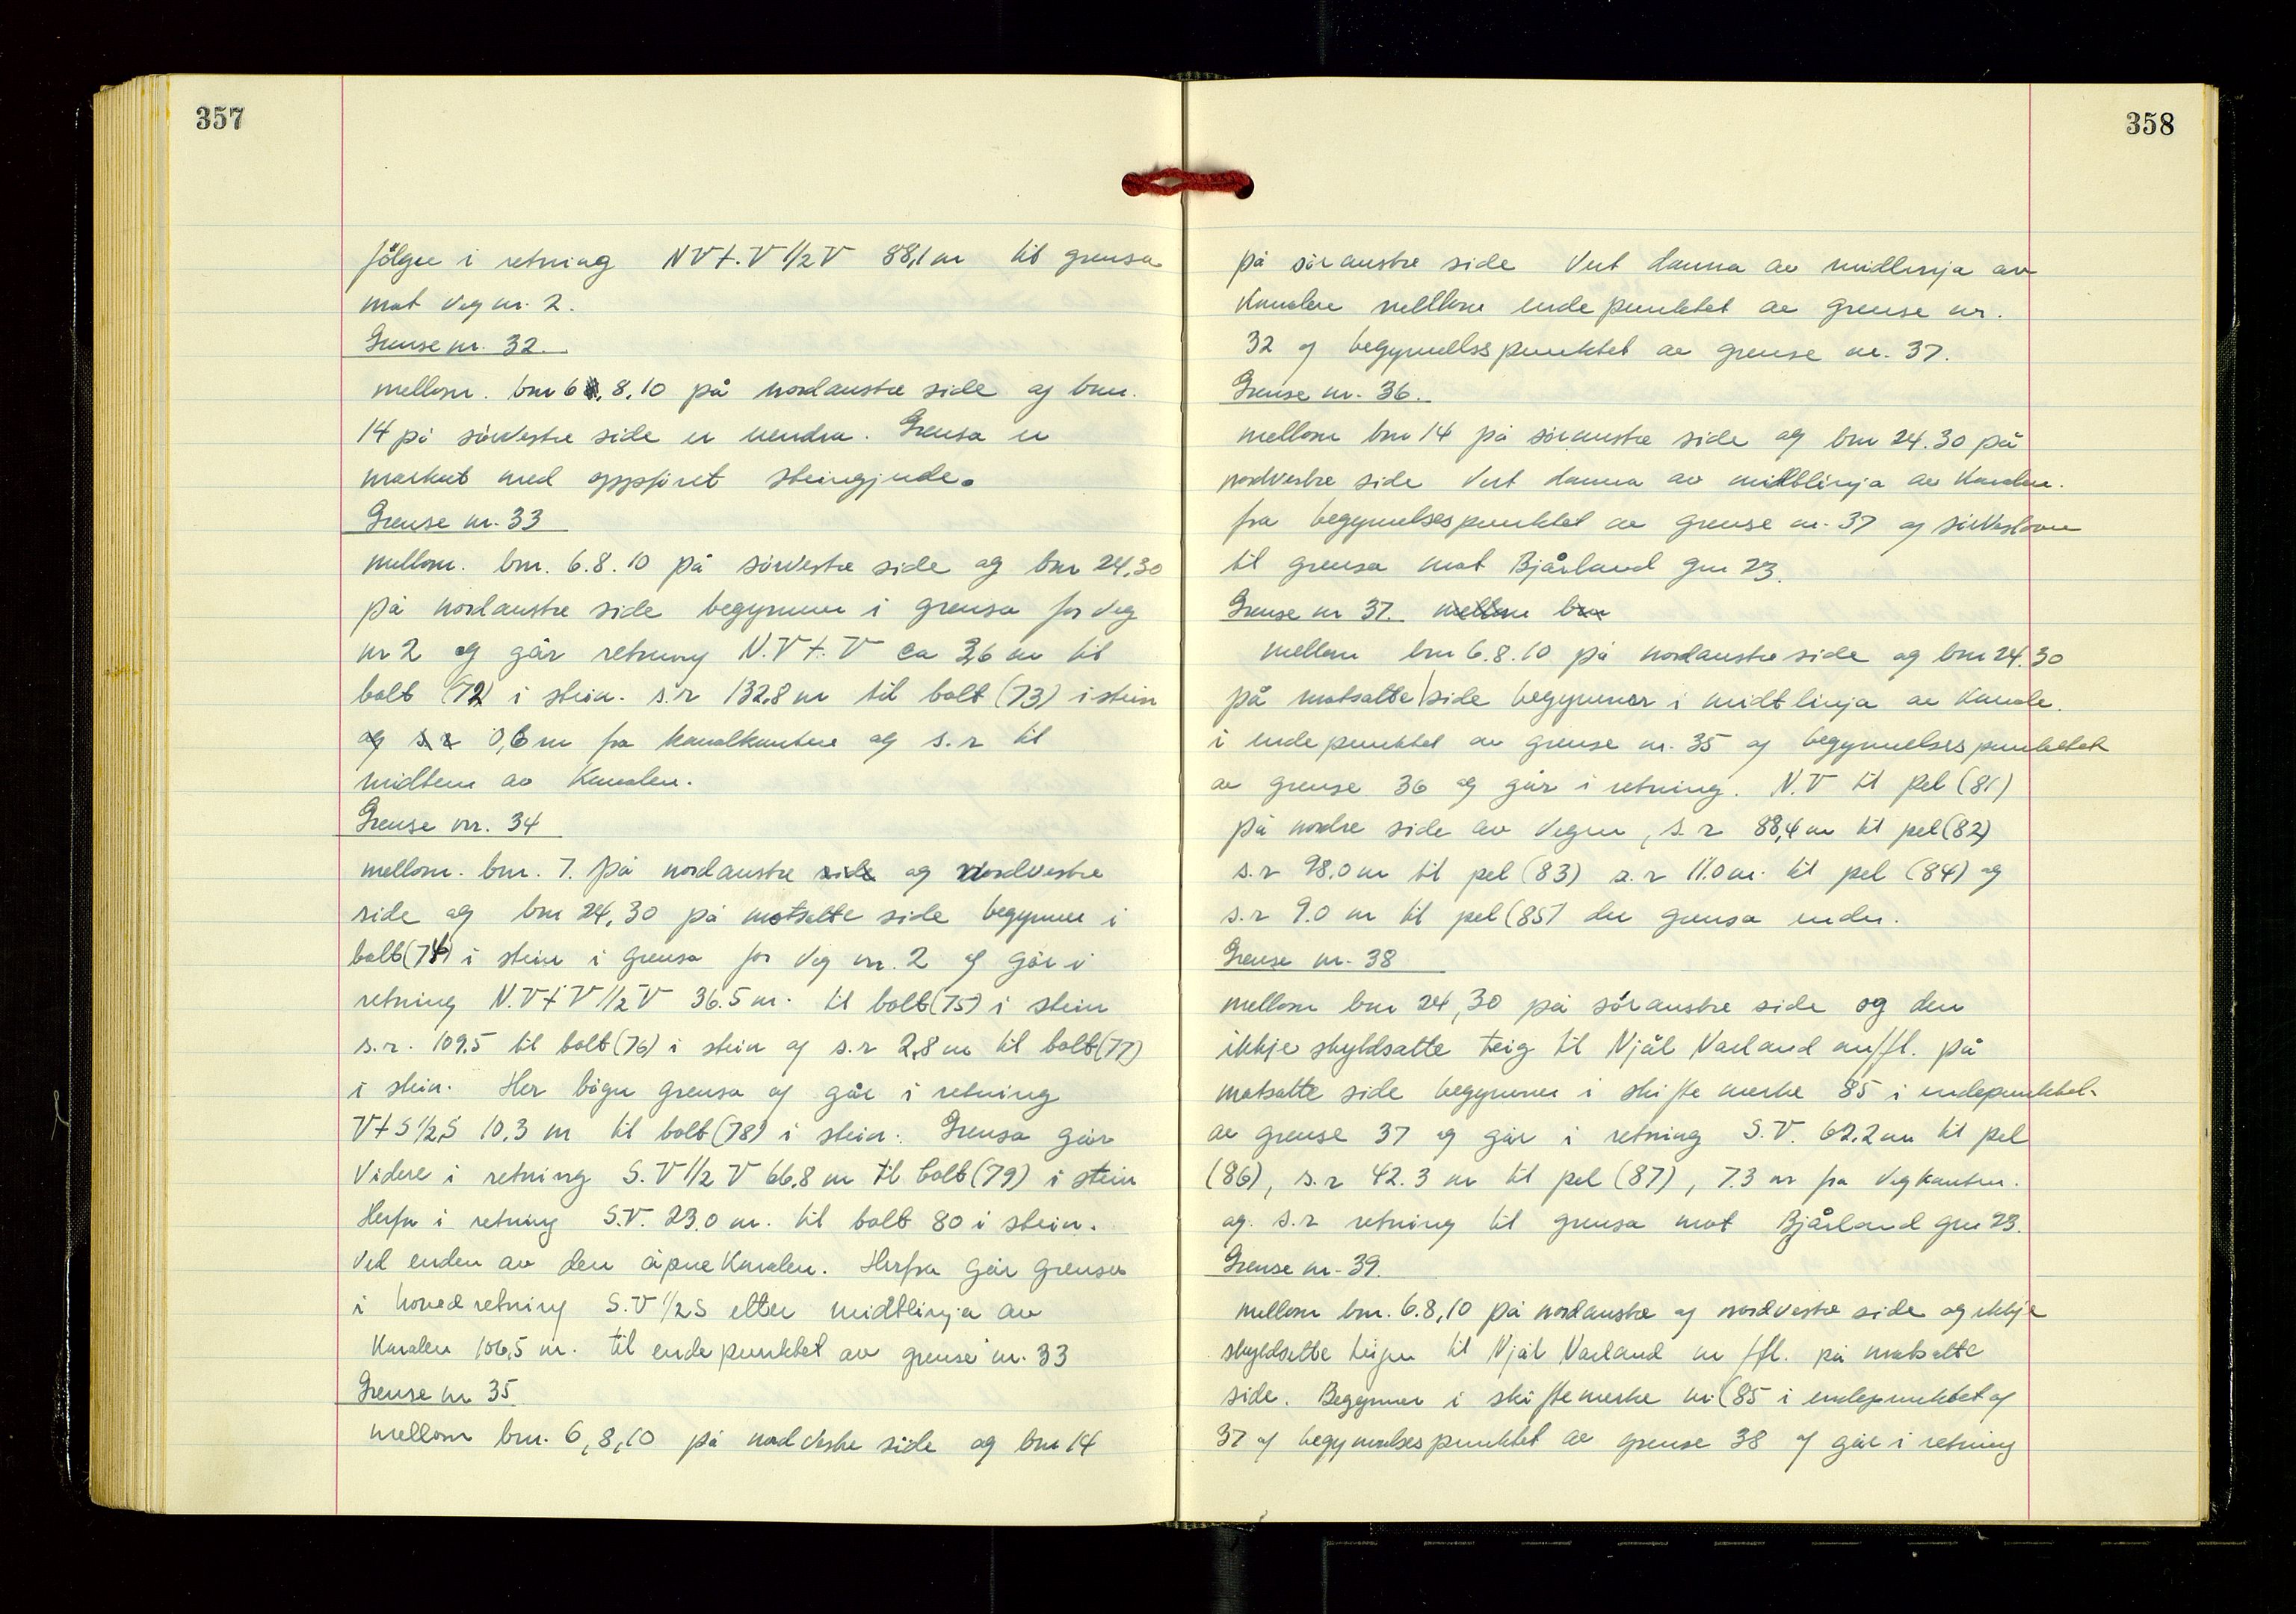 357
følger i retning NVt.V 1/2 V 88,1 m til grensa
mot veg nr. 2.
Grense nr. 32.
mellom. bnr 6, 8, 10 på nordaustre side og bnr.
14 på sørvestre side er uendra. Grensa er
markert med oppført steingjerde.
Grense nr. 33
mellom. bnr. 6.8.10 på sørvestre side og bnr 24.30
på nordaustre side begynner i grensa for veg
nr 2 og går retning N.V t. V ca 3,6 m til
bolt (72) i stein. s.r 132,8 m til bolt (73) i stein
og s.r 0,6 m fra kanalkanten og s.r til
midten av Kanalen.
Grense nr. 34
mellom. bnr. 7. på nordaustre side og nordvestre
side og bnr 24, 30 på motsatte side begynner i
bolt (74) i stein i grensa for veg nr. 2 og går i
retning N.V t V 1/2 V 36.5 m. til bolt (75) i stein
s.r. 109.5 til bolt (76) i stein og s.r 2,8 m til bolt (77)
i stein. Her bøger grensa og går i retning
V t S 1/2 S 10,3 m til bolt (78) i stein. Grensa går
videre i retning S.V 1/2 V 66,8 m til bolt (79) i stein
Herfra i retning S.V. 23.0 m. til bolt 80 i stein.
ved enden av den åpne Kanalen. Herfra går grensa
i hovedretning S.V 1/2 S etter midtlinja av
Kanalen 106,5 m. til endepunktet av grense nr. 33
Grense nr 35
mellom bnr. 6, 8, 10 på nordvestre side og bnr 14
358
på søraustre side vert danna av midlinja av
Kanalen mellom endepunktet av grense nr.
32 og begynnelsspunktet av grense nr. 37.
Grense nr. 36.
mellom bnr 14 på søraustre side og bnr 24.30 på
nordvestre side vert danna av midtlinja av Kanalen.
fra begynnelsespunktet av grense nr. 37 og sørvestover
til grensa mot Bjårland gnr 23.
Grense nr 37. mellom bnr
mellom bnr 6.8.10 på nordaustre side og bnr 24.30
på motsatte side begynner i midtlinja av Kanale.
i endepunktet av grense nr. 35 og begynnelsespunktet
av grense 36 og går i retning. N.V til pel (81)
på nordre side av vegen, s.r 88,4 m til pel (82)
s.r 98.0 m til pel (83) s.r 11.0 m. til pel (84) og
s.r 9.0 m til pel (85) der grensa ender.
Grense nr. 38
mellom bnr 24, 30 på søraustre side og den
ikkje skyldsatte teig til Njål Varland m/fl. på
motsatte side begynner i skiftemerke 85 i endepunktet
av grense 37 og går i retning S.V. 62.2 m til pel
(86), s.r 42.3 m til pel (87), 7.3 m fra vegkanten.
og. s.r retning til grensa mot Bjårland gnr 23.
Grense nr. 39.
mellom bnr. 6.8,10 på nordaustre og nordvestre side og ikkje
skyldsatte teigen til Njål Varland m/fl. på motsatte
side. Begynner i skiftemerke nr (85 i endepunktet og
37 og begynnelsespunktet av grense 38 og går i retning